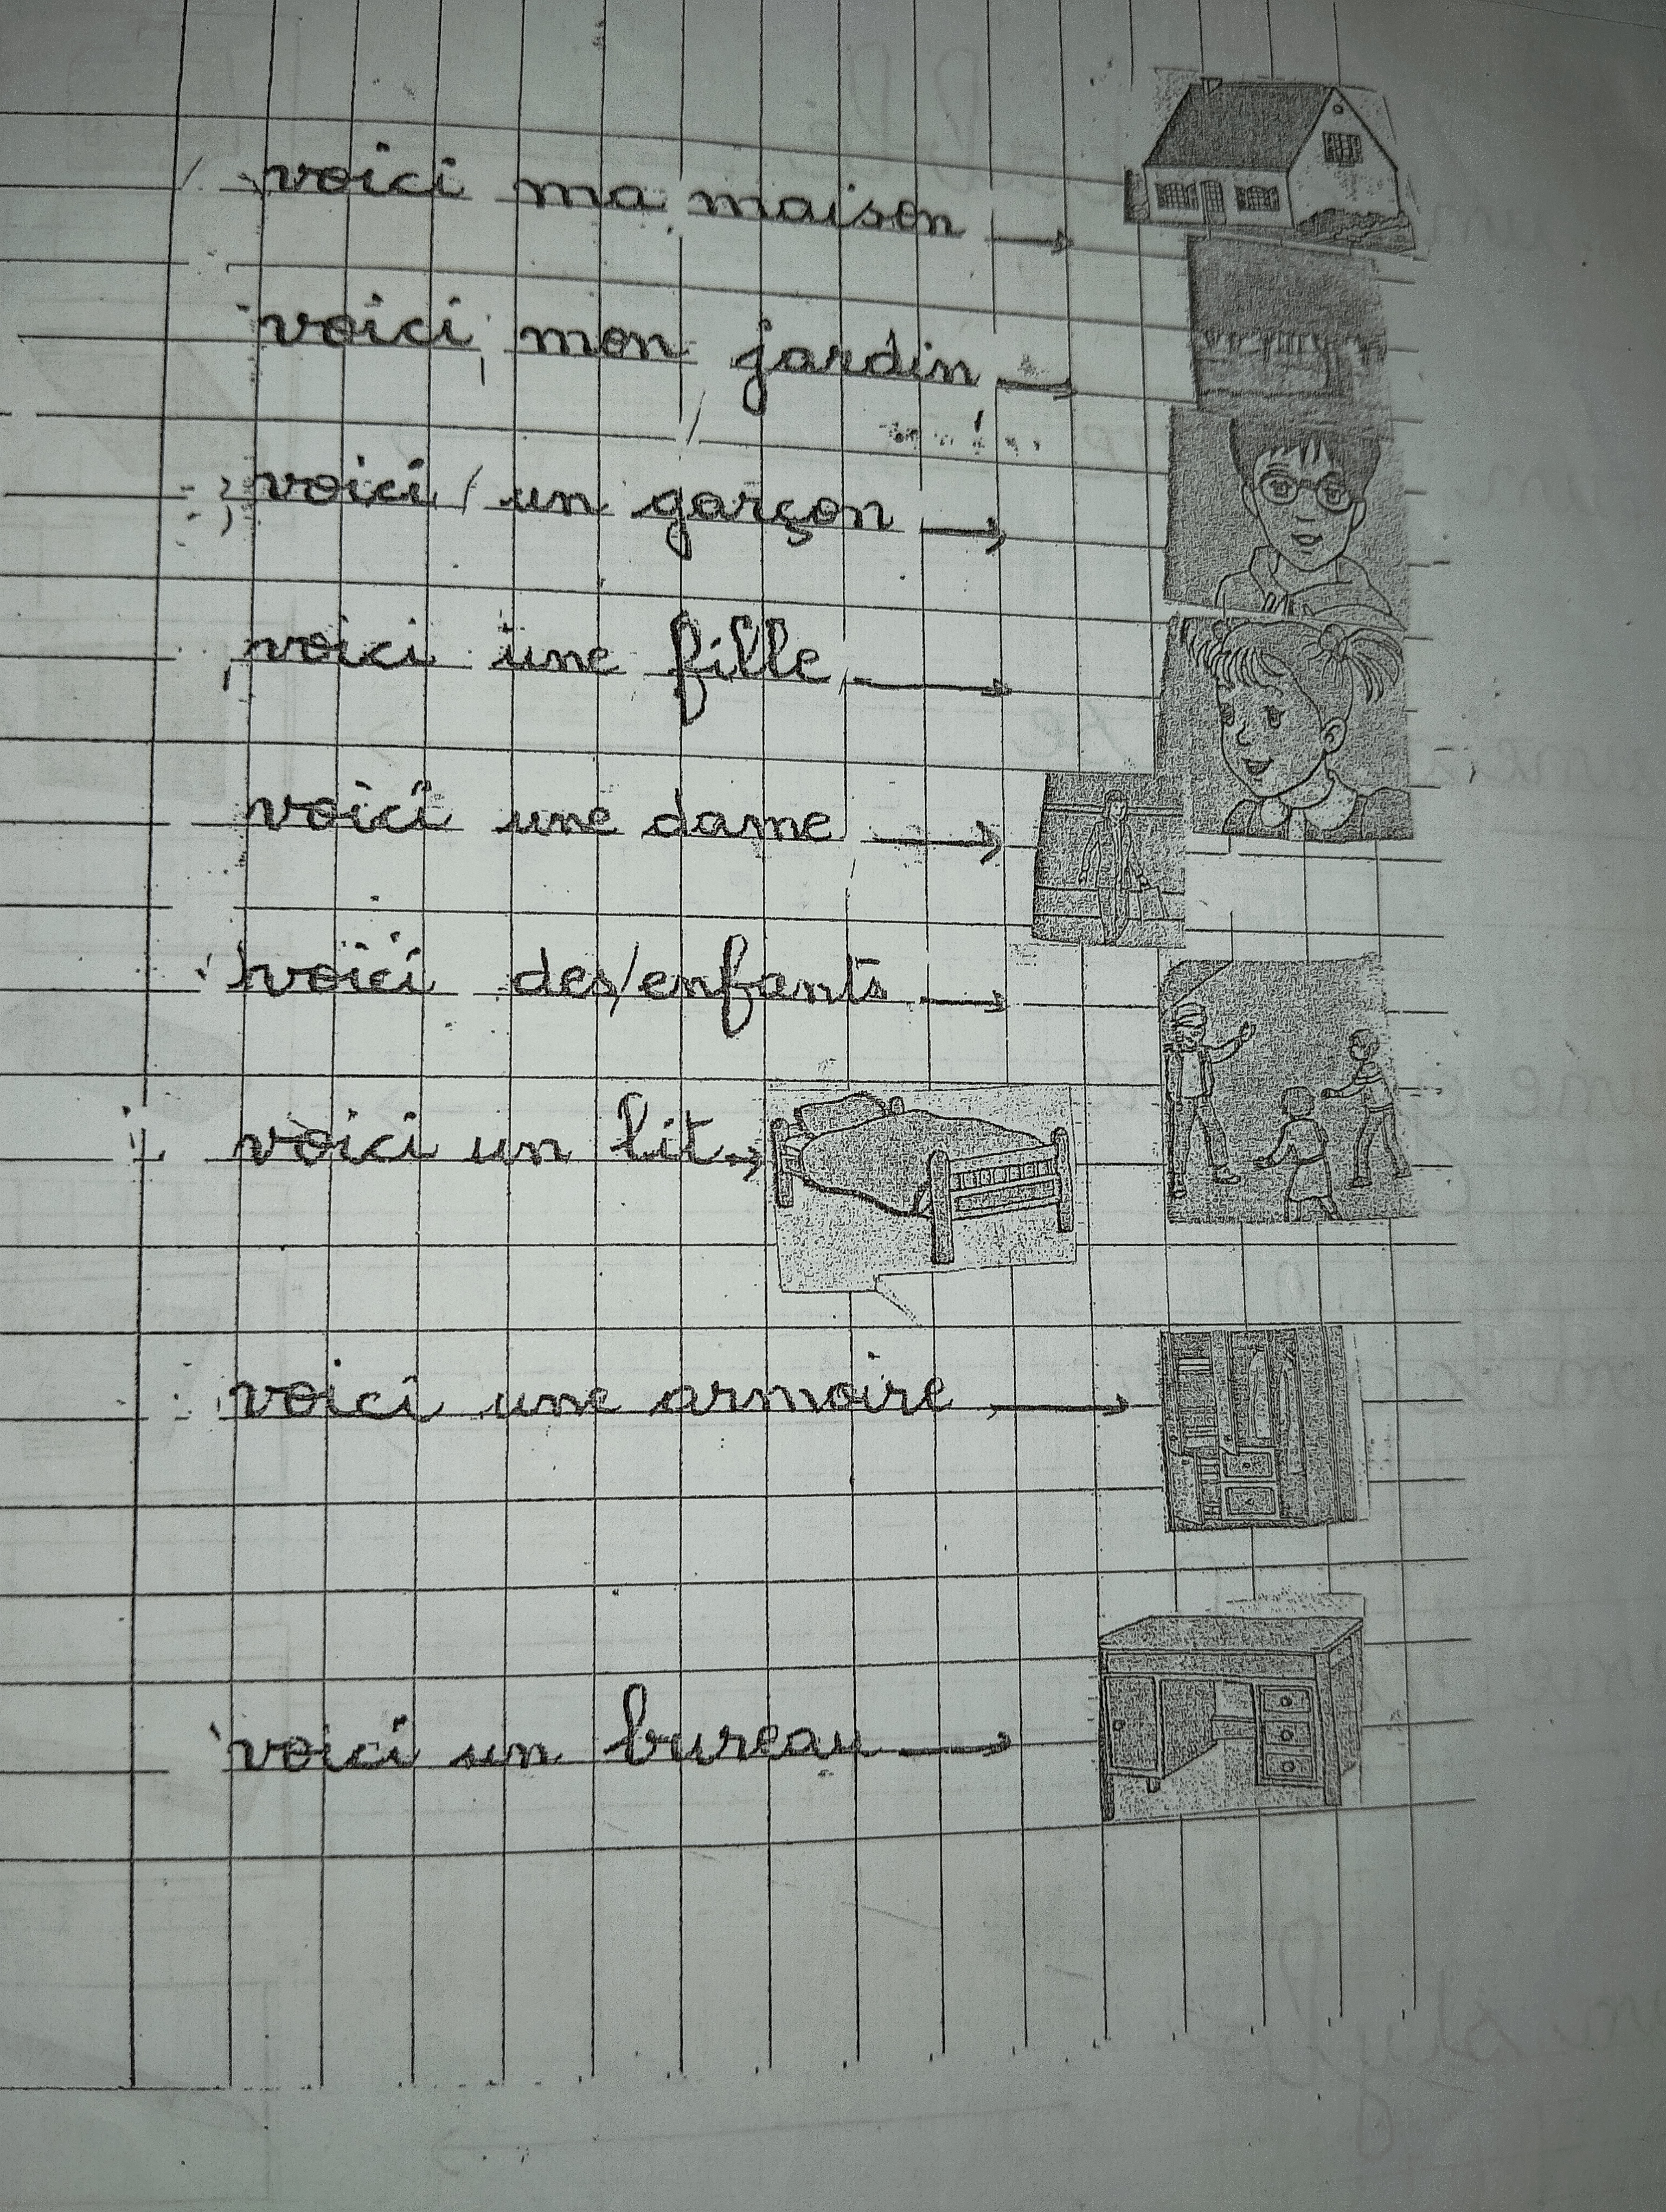 voici ma maison →
voici mon jardin →
voici un garçon →
voici une fille →
voici une dame →
voici des enfants →
voici un lit →
voici une armoire →
voici un bureau →